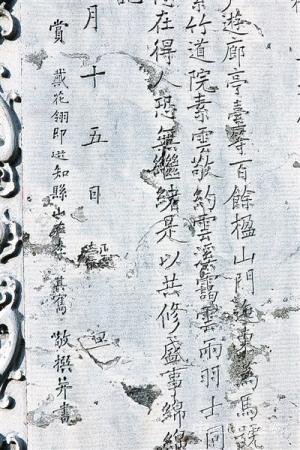 遊廊亭臺等百餘楹山門迤東為馬蹺
紫竹道院素雲敬約雲溪靄雲兩羽士同
在得人恐無繼緒是以共修盛事綿綿
月十五日
賞戴花翎即選知縣山 敬撰并書